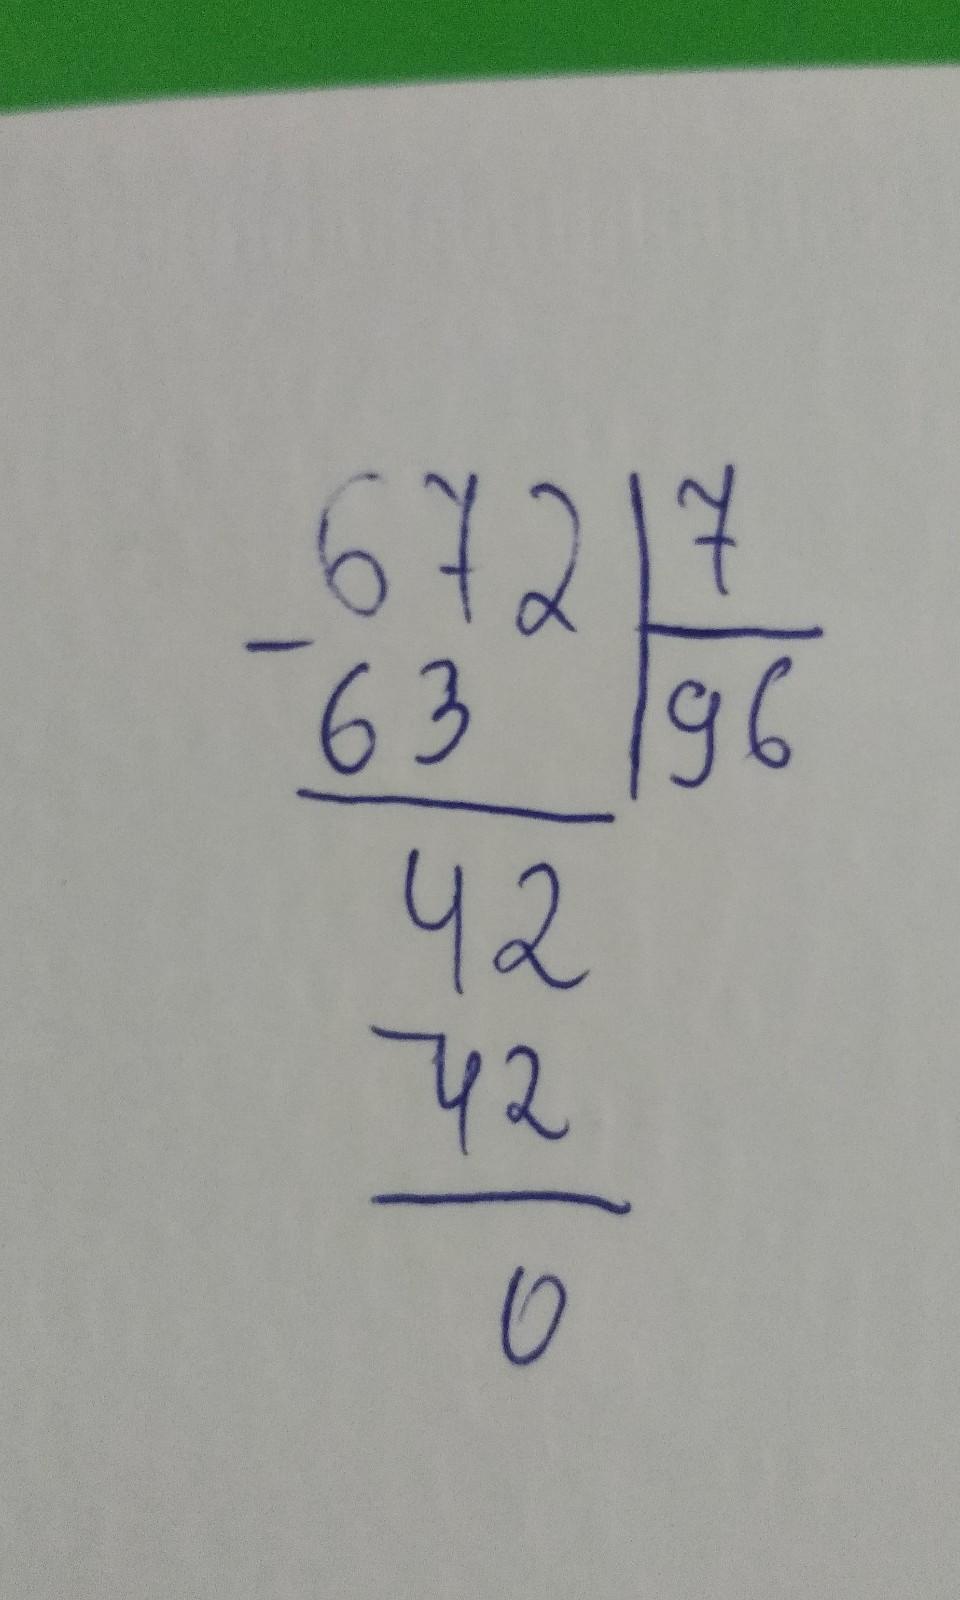 672 | 7
- 63 | 96
42
- 42
0